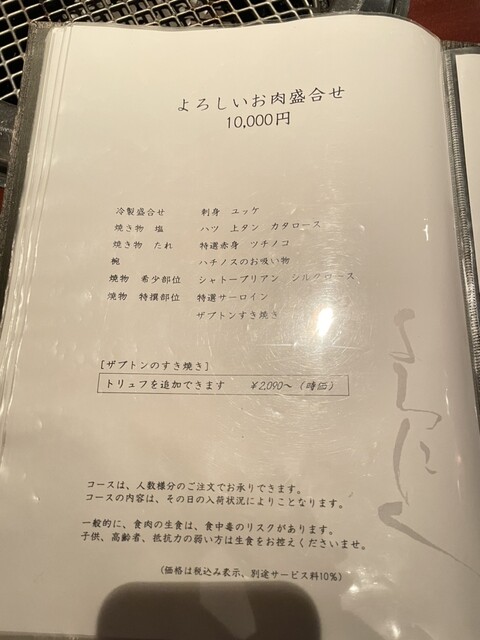 よろしいお肉盛合せ
10,000円
冷製盛合せ 刺身 ユッケ
焼き物 塩 ハツ 上タン カタロース
焼き物 たれ 特選赤身 ツチノコ
椀 ハチノスのお吸い物
焼物 希少部位 シャトーブリアン シルクロース
焼物 特撰部位 特選サーロイン
ザブトンすき焼き
[ザブトンのすき焼き]
トリュフを追加できます ¥2,090～(時価)
コースは、人数様分のご注文でお承りできます。
コースの内容は、その日の入荷状況によりことなります。
一般的に、食肉の生食は、食中毒のリスクがあります。
子供、高齢者、抵抗力の弱い方は生食をお控えくださいませ。
(価格は税込み表示、別途サービス料10%)
よろにく